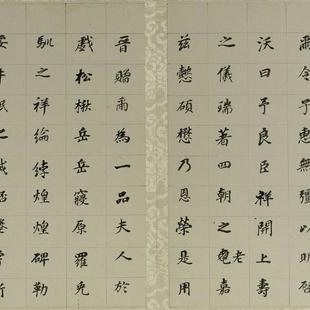 令予惠無疆以
沃曰予良臣祥開上壽
之儀瑞著四朝之老嘉
茲懿碩懋乃恩榮是用
晉贈爾為一品夫人於
戲松楸岳岳寢原羅兔
馴之祥綸綍煌煌碑勒